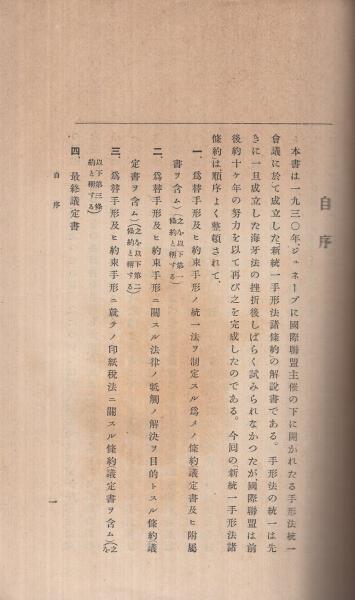 自序
本書は一九三〇年ジュネーブに國際聯盟主催の下に開かれたる手形法統一
會議に於て成立した新統一手形法諸條約の解說書である。手形法の統一は先
きに一旦成立した海牙法の挫折後しばらく試みられなかつたが、國際聯盟は前
後約十ヶ年の努力を以て再び之を完成したのである。今回の新統一手形法諸
條約は順序よく整頓されて、
一、爲替手形及ヒ約束手形ノ統一法ヲ制定スル爲メノ條約議定書及ヒ附屬
書ヲ含ム)(之ヲ以下第一條約と稱する)
二、爲替手形及ヒ約束手形ニ關スル法律ノ牴觸ノ解決ヲ目的トスル條約(議
定書ヲ含ム)(之を以下第二條約と稱する)
三、爲替手形及ヒ約束手形ニ就テノ印紙稅法ニ關スル條約(議定書ヲ含ム)(之を
以下第三條約と稱する)
四、最終議定書
自序
一